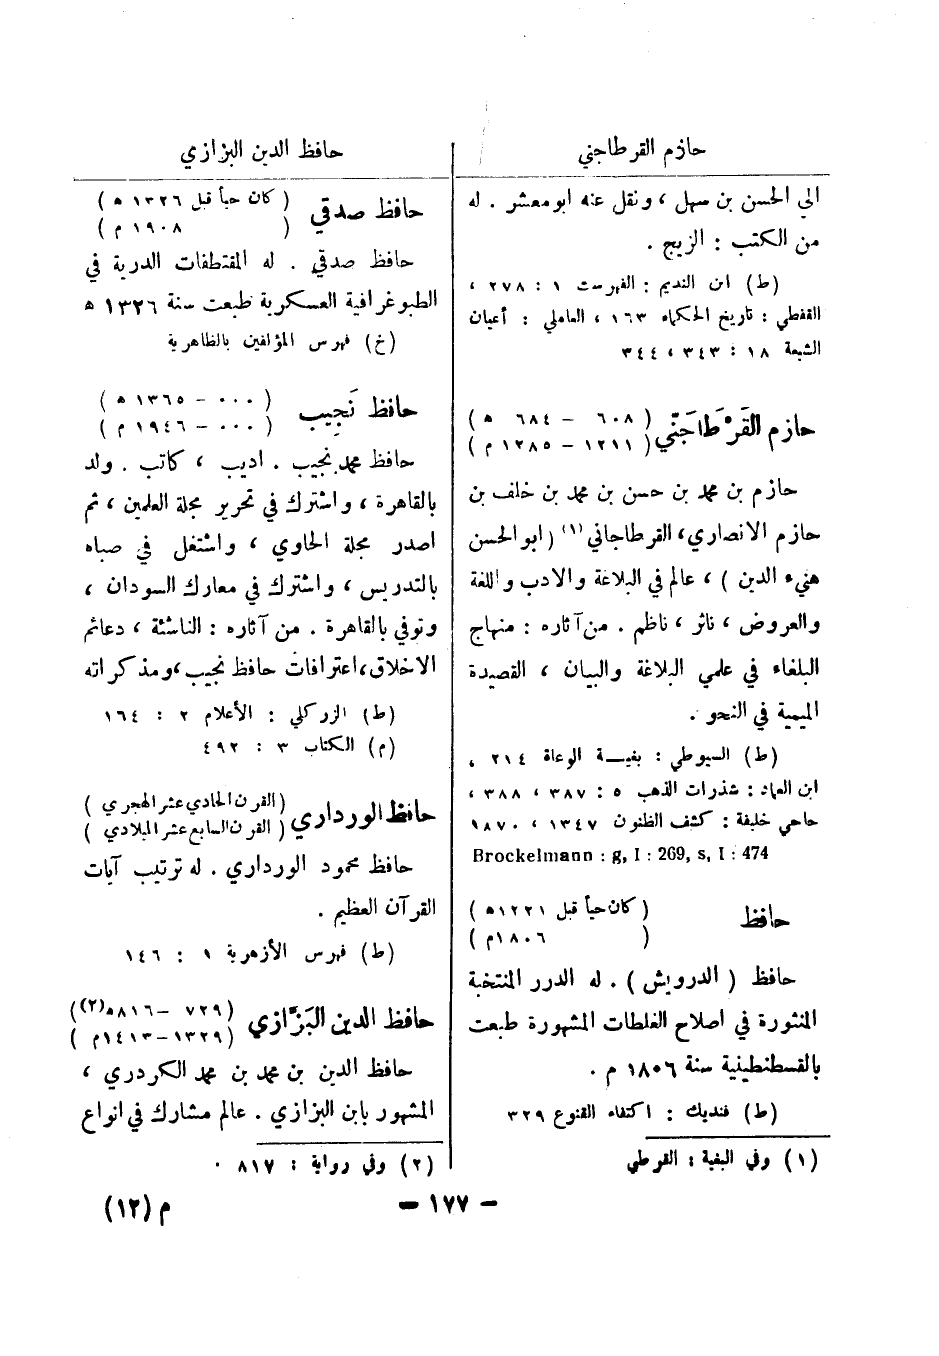 حازم القرطاجني
الى الحسن بن سهل ، ونقل عنه ابو معشر . له
من الكتب : الزيج .
(ط) ابن النديم : الفهرست ١ : ٢٧٨ ،
القفطي : تاريخ الحكماء ١٦٣ ، العاملي : أعيان
الشيعة ١٨ : ٣٤٣ ، ٣٤٤
حازم القَرْطَاجَنّي ( ٦٠٨ – ٦٨٤ ه )
( ١٢١١ – ١٢٨٥ م )
حازم بن محمد بن حسن بن محمد بن خلف بن
حازم الانصاري، القرطاجاني (١) ( ابو الحسن
هنيء الدين ) ، عالم في البلاغة والادب واللغة
والعروض ، ناثر ، ناظم . من آثاره : منهاج
البلغاء في علمي البلاغة والبيان ، القصيدة
الميمية في النحو .
(ط) السيوطي : بغية الوعاة ٢١٤ ،
ابن العماد : شذرات الذهب ٥ : ٣٨٧ ، ٣٨٨ ،
حاجي خليفة : كشف الظنون ١٣٤٧ ، ١٨٧٠
Brockelmann : g, I : 269, s, I : 474
حافظ ( كان حياً قبل ١٢٢١ه )
( ١٨٠٦م )
حافظ ( الدرويش ) . له الدرر المنتخبة
المنثورة في اصلاح الغلطات المشهورة طبعت
بالقسطنطينية سنة ١٨٠٦ م .
(ط) فنديك : اكتفاء القنوع ٣٢٩
(١) وفي البغية : القرطي
حافظ الدين البزازي
حافظ صدقي ( كان حياً قبل ١٣٢٦ ه )
( ١٩٠٨ م )
حافظ صدقي . له المقتطفات الدرية في
الطبوغرافية العسكرية طبعت سنة ١٣٢٦ ه
(خ) فهرس المؤلفين بالظاهرية
حافظ نَجِيب ( ٠٠٠ – ١٣٦٥ ه )
( ٠٠٠ – ١٩٤٦ م )
حافظ محمد نجيب . اديب ، كاتب . ولد
بالقاهرة ، واشترك في تحرير مجلة العلمين ، ثم
اصدر مجلة الحاوي ، واشتغل في صباه
بالتدريس ، واشترك في معارك السودان ،
وتوفي بالقاهرة . من آثاره : الناشئة ، دعائم
الاخلاق ، اعترافات حافظ نجيب ، ومذكراته
(ط) الزركلي : الأعلام ٢ : ١٦٤
(م) الكتاب ٣ : ٤٩٢
حافظ الورداري ( القرن الحادي عشر الهجري )
( القرن السابع عشر الميلادي )
حافظ محمود الورداري . له ترتيب آيات
القرآن العظيم .
(ط) فهرس الأزهرية ١ : ١٤٦
حافظ الدين البَزَّازي ( ٧٢٩ – ٨١٦ه(٢))
( ١٣٢٩–١٤١٣م )
حافظ الدين بن محمد بن محمد الكردري ،
المشهور بابن البزازي . عالم مشارك في انواع
(٢) وفي رواية : ٨١٧ .
– ١٧٧ –
م (١٢)